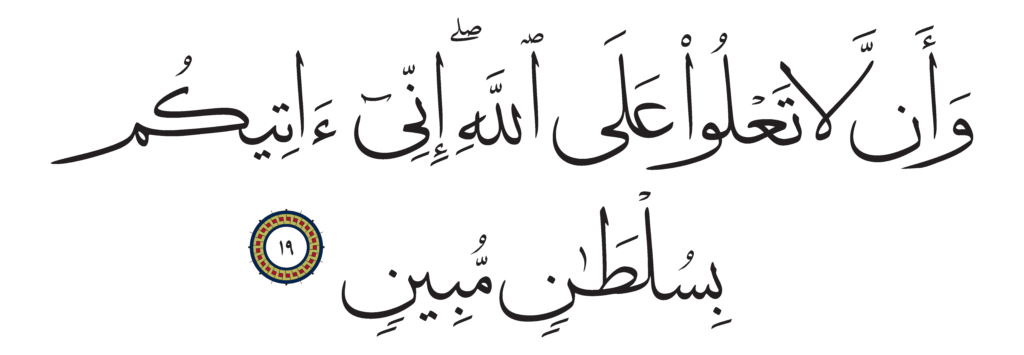 وَأَن لَّا تَعْلُوا۟ عَلَى ٱللَّهِ ۖ إِنِّىٓ ءَاتِيكُم
بِسُلْطَـٰنٍ مُّبِينٍ ١٩